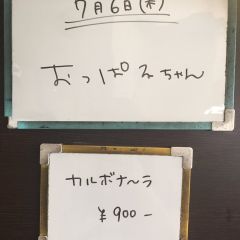 7月6日(木)
おっぱみちゃん
カルボナ〜ラ
¥900-